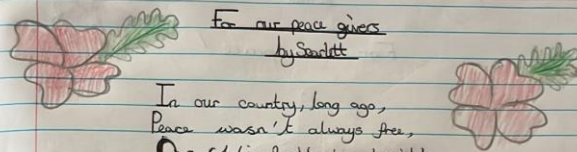 For our peace givers
by Scarlitt
In our country, long ago,
Peace wasn't always free,